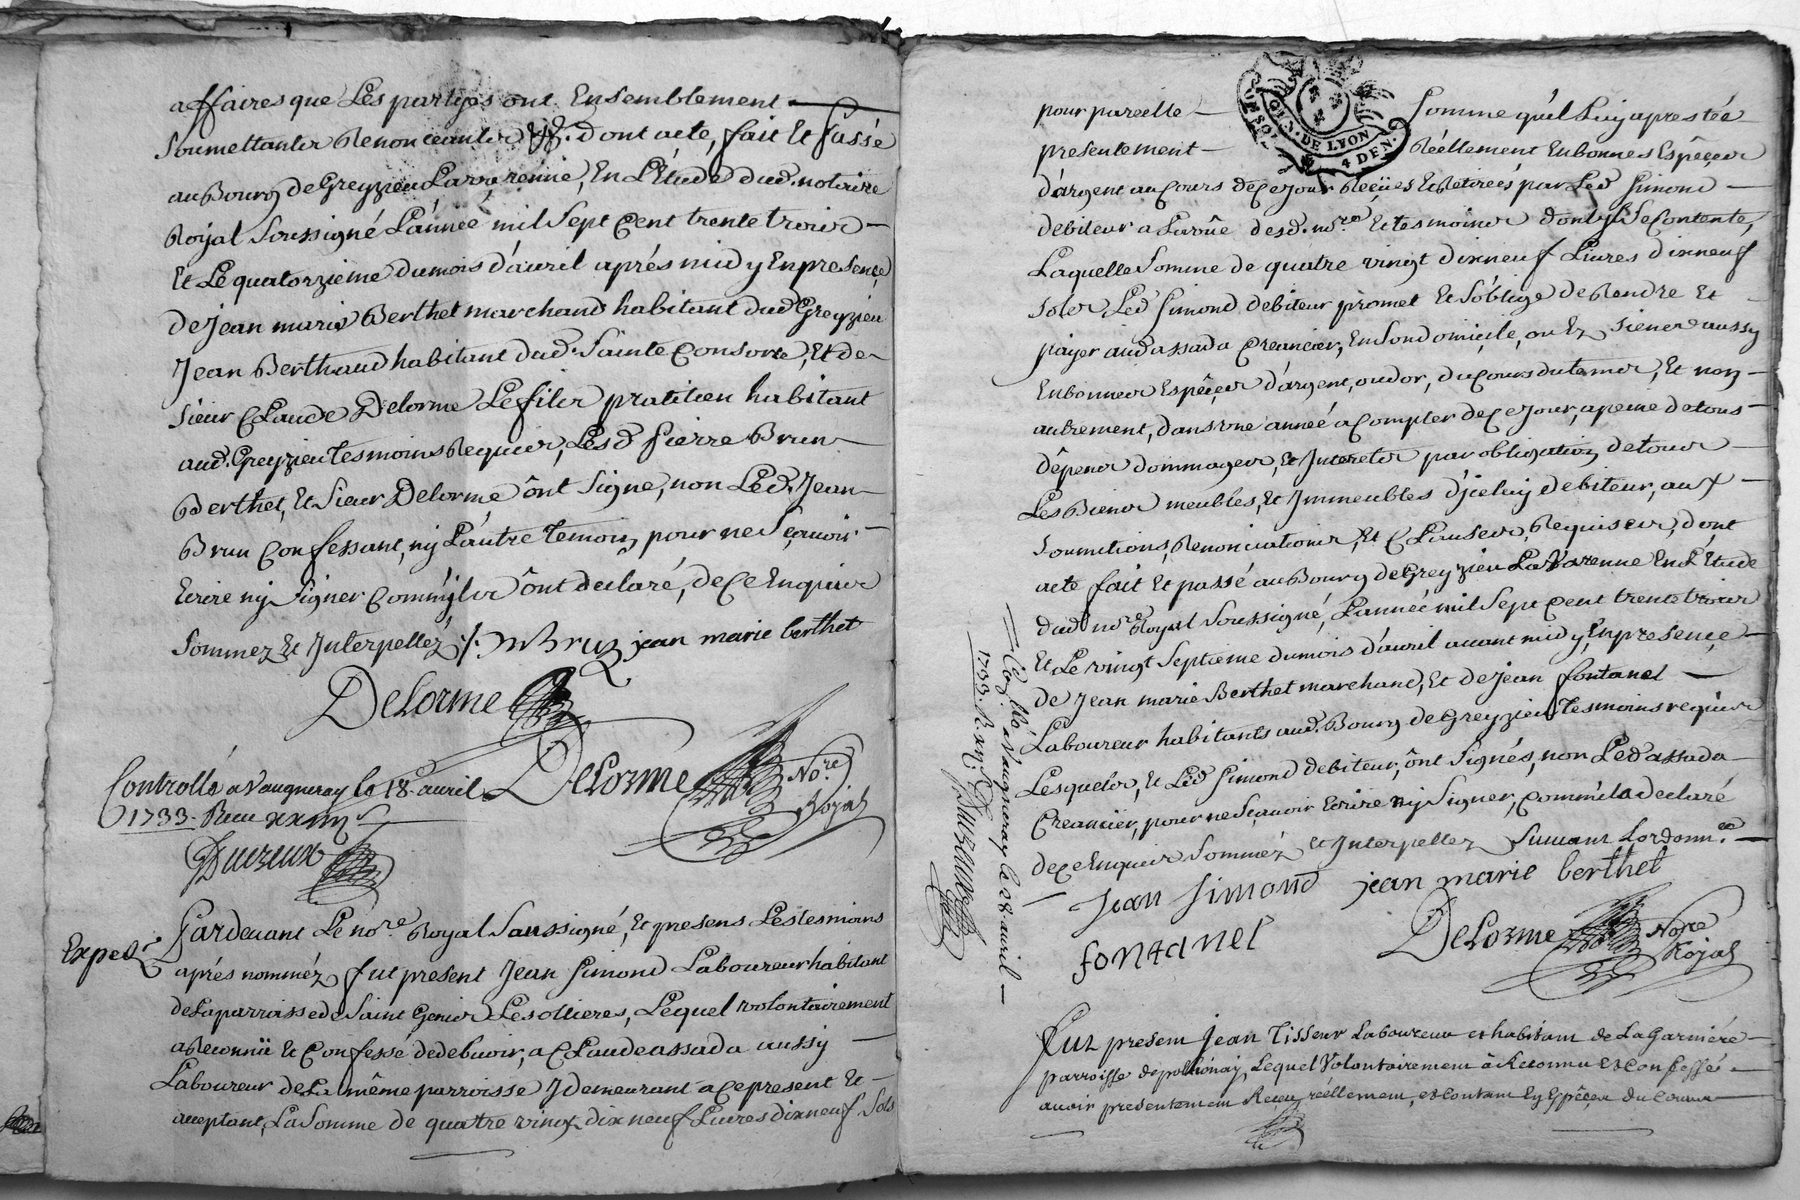 affaires que Les partyes ont Ensemblement
Soumettantes Renonceantes &c. dont acte, fait Et passé
au Bourg de Greyzieu La varenne, En L'Étude dud. notaire
Royal Soussigné L'année mil Sept Cent trente trois
Et Le quatorzieme du mois d'auril aprés midy En presence
de Jean marie Berthet marchand habitant dud Greyzieu
Jean Berthaud habitant dud. Sainte Consorce, Et de
Sieur Claude Delorme Le fils praticien habitant
aud. Greyzieu tesmoins Requis, Lesd. pierre Brun
Berthet, Et Sieur Delorme ônt Signe, non Led. Jean
Brun Confessant, ny L'autre temoin pour ne Sçauoir
Ecrire ny Signer Comm'jls ônt declaré, de Ce Enquis
Sommez Et Interpellez ./. Brun jean marie berthet
Delorme
Controllé a Vaugneray le 18. auril
1733. Receu
Delorme No.re Royal
Ducreux
Exped.é
Pardeuant Le no.re Royal Soussigné, Et presens Les tesmoins
aprés nommez fut present Jean Simond Laboureur habitant
de La parroisse de Saint Genis Les ollieres, Lequel volontairement
a Reconnü Et Confessé de debuoir, a Claude assada aussy
Laboureur de La même parroisse y demeurant a Ce present Et
acceptant, La Somme de quatre vingt dix neuf Liures dix neuf Sols
pour pareille Somme qu'il Luy a prestée
presentement Réellement En bonnes Espêçes
d'argent au Cours de Ce Jour Reçües Et Retirées par Led Simond
debiteur a La vûe desd. no.re Et tesmoins dont jl Se Contente,
Laquelle Somme de quatre vingt dix neuf Liures dix neuf
Sols Led Simond debiteur promet Et S'oblige de Rendre Et
payer aud assada Creancier, En Son domiçile, ou Ez siens aussy
En bonnes Espêçes d'argent, ou d'or, du Cours du tems, Et non
autrement, dans vne année a Compter de Ce Jour, a peine de tous
dépens dommages, Et Interets par obligation de tous
Les Biens meubles, Et Jmmeubles d'jceluy debiteur, aux
Soumitions, Renonciations, Et Clauses Requises, dont
acte fait Et passé au Bourg de Greyzieu La Varenne En L'Étude
dud no.re Royal Soussigné, L'année mil Sept Cent trente trois
Et Le vingt Septieme du mois d'auril auant midy, En presence
de Jean marie Berthet marchand, Et de Jean fontanel
Laboureur habitants aud. Bourg de Greyzieu tesmoins requis
Lesquels, Et Led Simond debiteur, ônt Signés, non Led assada
Creancier, pour ne Sçauoir Ecrire ny Signer, Comm'il a declaré
de Ce Enquis Sommez et Interpellez Suiuant Lordonn.ce
Jean Simond jean marie berthet
fontanel
Delorme No.re Royal
a Vaugneray le 28. auril
1733.
GEN. DE LYON
4 DEN.
Fut present Jean Tisseur Laboureur et habitant de La Garniére
parroisse de pollionay, Lequel Volontairement à Reconnu et Confessé
auoir presentement Receu réellement, et Contant En Espêces du Cours